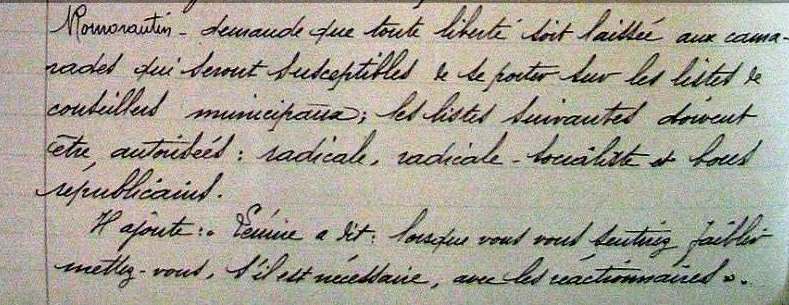 Romorantin - demande que toute liberté soit laissée aux cama-
rades qui seront susceptibles de se porter sur les listes de
conseillers municipaux; les listes suivantes doivent
être autorisées: radicale, radicale-socialiste et bons
républicains.
Il ajoute: « Lénine a dit: lorsque vous vous sentirez faiblir
mettez-vous, s'il est nécessaire, avec les réactionnaires ».